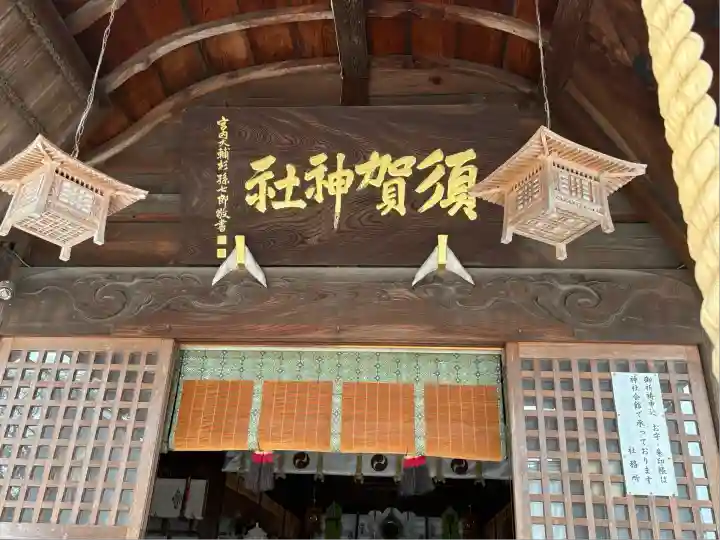 須賀神社
宮内大輔杉孫七郎敬書
御祈祷申込 お守・朱印帳は
神社会館で承っております
社務所